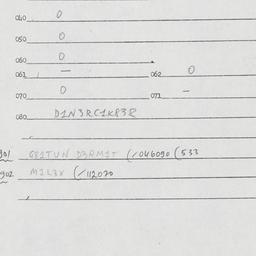 040 0
050 0
060 0
061 — 062 0
070 0 071 —
080 D1N3RC1K838
901 GE1TUN D3RM1T (/046090 (533
902 M1L3X (/112070